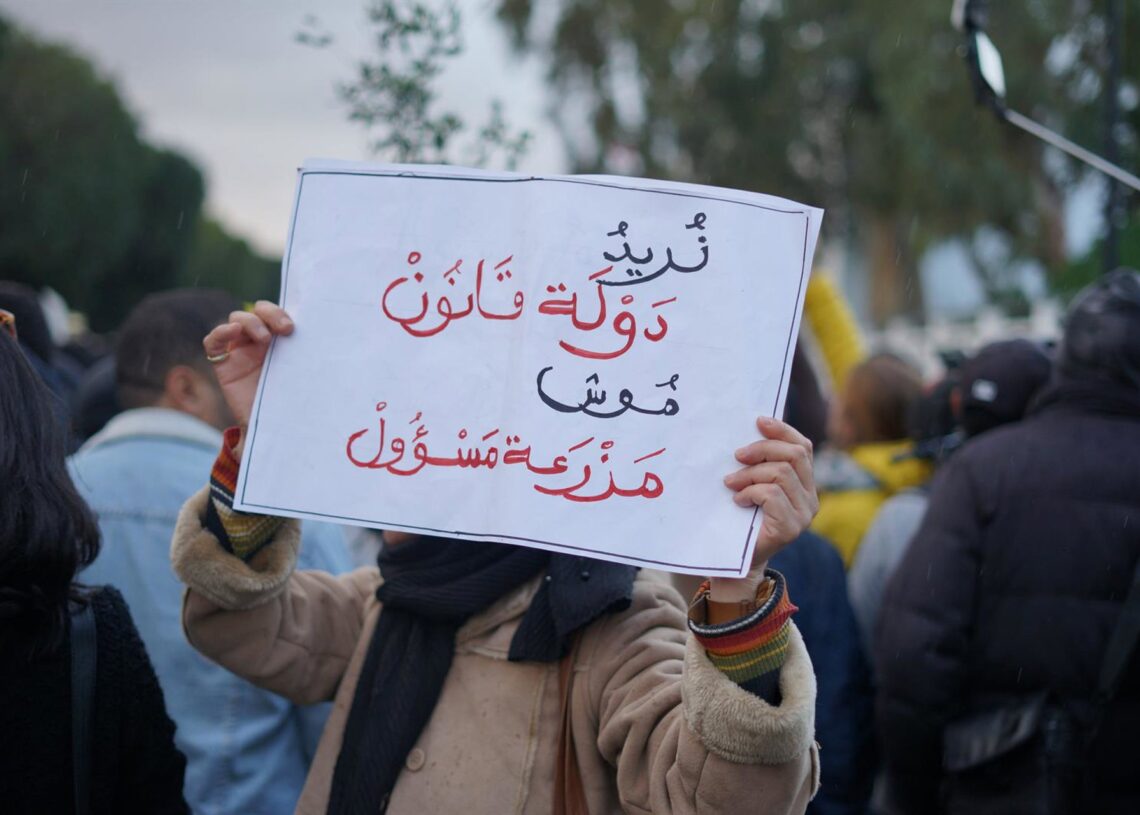 نُريدُ
دَوْلَة قَانُونْ
مُوش
مَزْرَعة مَسْؤُولْ